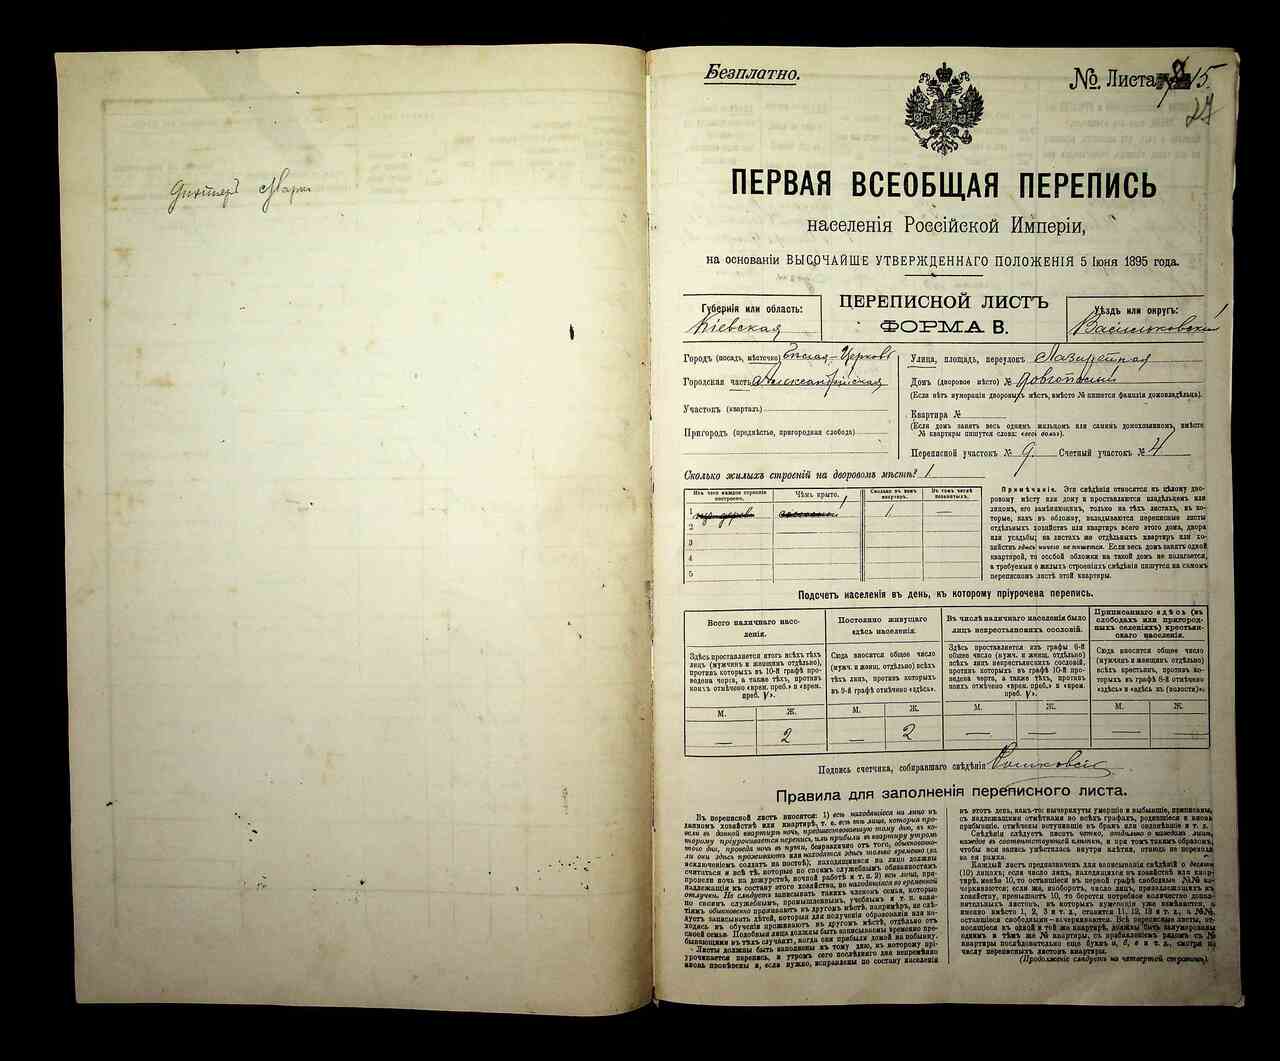 Безплатно.
№ Листа 15.
27
ПЕРВАЯ ВСЕОБЩАЯ ПЕРЕПИСЬ
населенія Россійской Имперіи,
на основаніи ВЫСОЧАЙШЕ УТВЕРЖДЕННАГО ПОЛОЖЕНІЯ 5 Іюня 1895 года.
Губернія или область:
Кіевская
ПЕРЕПИСНОЙ ЛИСТЪ
ФОРМА В.
Уѣздъ или округъ:
Васильковскій
Городъ (посадъ, мѣстечко) Бѣлая-Церковь
Городская часть Александрійская
Участокъ (кварталъ)
Пригородъ (предмѣстье, пригородная слобода)
Улица, площадь, переулокъ Лазаретная
Домъ (дворовое мѣсто) №
(Если нѣтъ нумераціи дворовыхъ мѣстъ, вмѣсто № пишется фамилія домовладѣльца).
Квартира №
(Если домъ занятъ весь однимъ жильцомъ или самимъ домохозяиномъ, вмѣсто
№ квартиры пишутся слова: «весь домъ»).
Переписной участокъ № 9 Счетный участокъ № 4
Сколько жилыхъ строеній на дворовомъ мѣстѣ? 1
Изъ чего каждое строеніе построено.
Чѣмъ крыто.
Сколько въ немъ квартиръ.
Въ томъ числѣ незанятыхъ.
1 1 —
2
3
4
5
Примѣчаніе. Эти свѣдѣнія относятся къ цѣлому дво-
ровому мѣсту или дому и проставляются владѣльцемъ или
лицомъ, его замѣняющимъ, только на тѣхъ листахъ, въ ко-
торые, какъ въ обложку, вкладываются переписные листы
отдѣльныхъ хозяйствъ или квартиръ всего этого дома, двора
или усадьбы; на листахъ же отдѣльныхъ квартиръ или хо-
зяйствъ здѣсь ничего не пишется. Если весь домъ занятъ одной
квартирой, то особой обложки на такой домъ не полагается,
а требуемыя о жилыхъ строеніяхъ свѣдѣнія пишутся на самомъ
переписномъ листѣ этой квартиры.
Подсчетъ населенія въ день, къ которому пріурочена перепись.
Всего наличнаго насе-
ленія.
Здѣсь проставляется итогъ всѣхъ тѣхъ
лицъ (мужчинъ и женщинъ отдѣльно),
противъ которыхъ въ 10-й графѣ про-
ведена черта, а также тѣхъ, противъ
коихъ отмѣчено «врем. преб.» и «врем.
преб. V».
Постоянно живущаго
здѣсь населенія.
Сюда вносится общее число
(мужч. и женщ. отдѣльно) всѣхъ
тѣхъ лицъ, противъ которыхъ
въ 9-й графѣ отмѣчено «здѣсь».
Въ числѣ наличнаго населенія было
лицъ некрестьянскихъ сословій.
Здѣсь проставляется изъ графы 6-й
общее число (мужч. и женщ. отдѣльно)
всѣхъ лицъ некрестьянскихъ сословій,
противъ которыхъ въ графѣ 10-й прове-
дена черта, а также тѣхъ, противъ
коихъ отмѣчено «врем. преб.» и «врем.
преб. V».
Приписаннаго здѣсь (въ
слободахъ или пригород-
ныхъ селеніяхъ) крестьян-
скаго населенія.
Сюда вносится общее число
(мужчинъ и женщинъ отдѣльно)
всѣхъ крестьянъ, противъ ко-
торыхъ въ графѣ 8-й отмѣчено
«здѣсь» и «здѣсь въ (волости)».
М. Ж. М. Ж. М. Ж. М. Ж.
— 2 — 2 — — — —
Подпись счетчика, собиравшаго свѣдѣнія
Правила для заполненія переписного листа.
Въ переписной листъ вносятся: 1) всѣ находящіяся на лицо въ
данномъ хозяйствѣ или квартирѣ, т. е. всѣ тѣ лица, которыя про-
вели въ данной квартирѣ ночь, предшествовавшую тому дню, къ ко-
торому пріурочивается перепись, или прибыли въ квартиру утромъ
того дня, проведя ночь въ пути, безразлично отъ того, обыкновенно-
ли они здѣсь проживаютъ или находятся здѣсь только временно (за
исключеніемъ солдатъ на постоѣ); находящимися на лицо должны
считаться и всѣ тѣ, которые по своимъ служебнымъ обязанностямъ
провели ночь на дежурствѣ, ночной работѣ и т. п. 2) всѣ лица, при-
надлежащія къ составу этого хозяйства, но находящіяся во временной
отлучкѣ. Не слѣдуетъ записывать такихъ членовъ семьи, которые
по своимъ служебнымъ, промышленнымъ, учебнымъ и т. п. заня-
тіямъ обыкновенно проживаютъ въ другомъ мѣстѣ, напримѣръ, не слѣ-
дуетъ записывать дѣтей, которыя для полученія образованія или на-
ходясь въ обученіи проживаютъ въ другомъ мѣстѣ, отдѣльно отъ
своей семьи. Подобныя лица должны быть записываемы временно пре-
бывающими въ тѣхъ случаяхъ, когда они прибыли домой на побывку.
Листы должны быть заполнены къ тому дню, къ которому прі-
урочивается перепись, и утромъ сего послѣдняго дня непремѣнно
вновь провѣрены и, если нужно, исправлены по составу населенія
въ этотъ день, какъ-то: вычеркнуты умершіе и выбывшіе, приписаны,
съ надлежащими отмѣтками во всѣхъ графахъ, родившіеся и вновь
прибывшіе, отмѣчены вступившіе въ бракъ или овдовѣвшіе и т. д.
Свѣдѣнія слѣдуетъ писать четко, отдѣльно о каждомъ лицѣ,
каждое въ соотвѣтствующей клѣткѣ, и при томъ такимъ образомъ,
чтобы вся запись умѣстилась внутри клѣтки, отнюдь не переходя
за ея рамки.
Каждый листъ предназначенъ для записыванія свѣдѣній о десяти
(10) лицахъ; если число лицъ, находящихся въ хозяйствѣ или квар-
тирѣ, менѣе 10, то оставшіеся въ первой графѣ свободные №№ за-
черкиваются; если же, наоборотъ, число лицъ, принадлежащихъ къ
хозяйству, превышаетъ 10, то берется потребное количество допол-
нительныхъ листовъ, въ которыхъ нумерація уже измѣняется, а
именно вмѣсто 1, 2, 3 и т. д., ставится 11, 12, 13 и т. д., а №№,
оставшіеся свободными—вычеркиваются. Всѣ переписные листы, от-
носящіеся къ одной и той же квартирѣ, должны быть занумерованы
однимъ и тѣмъ же № квартиры, съ прибавленіемъ рядомъ съ №
квартиры послѣдовательно еще буквъ а, б, в и т. д., смотря по
числу переписныхъ листовъ квартиры.
(Продолженіе слѣдуетъ на четвертой страницѣ).